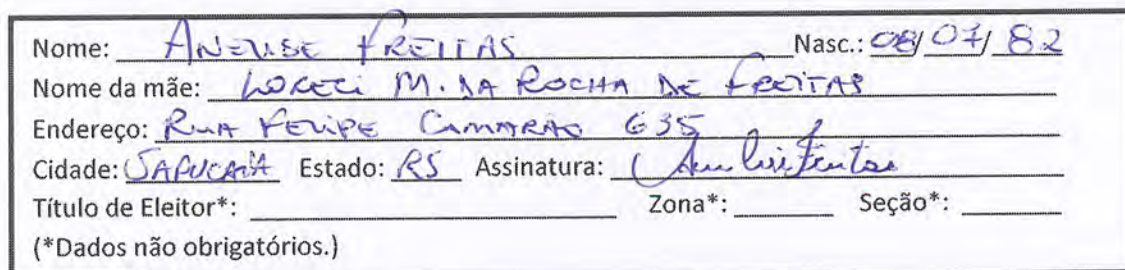 Nome: ANELISE FREITAS Nasc.: 08/07/82
Nome da mãe: LORECI M. DA ROCHA DE FREITAS
Endereço: RUA FELIPE CAMARÃO 635
Cidade: SAPUCAIA Estado: RS Assinatura:
Título de Eleitor*: Zona*: Seção*:
(*Dados não obrigatórios.)